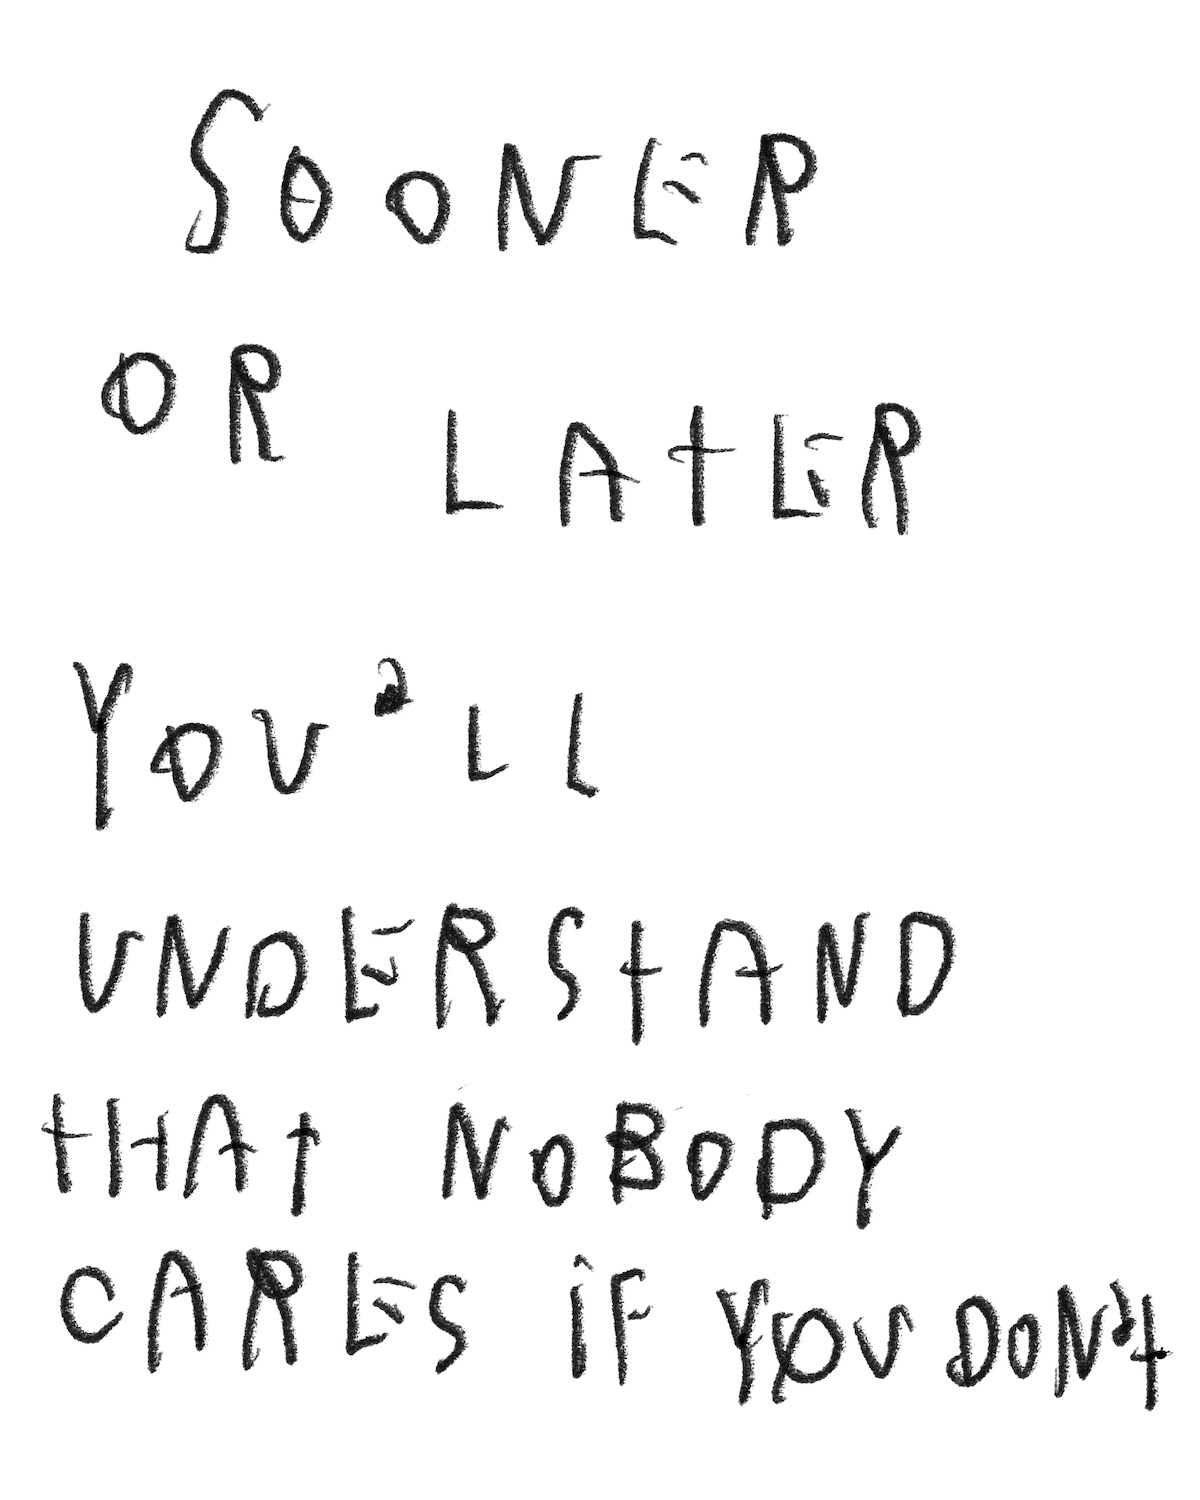 SOONER
OR LATER
YOU'LL
UNDERSTAND
THAT NOBODY
CARES iF YOU DON't